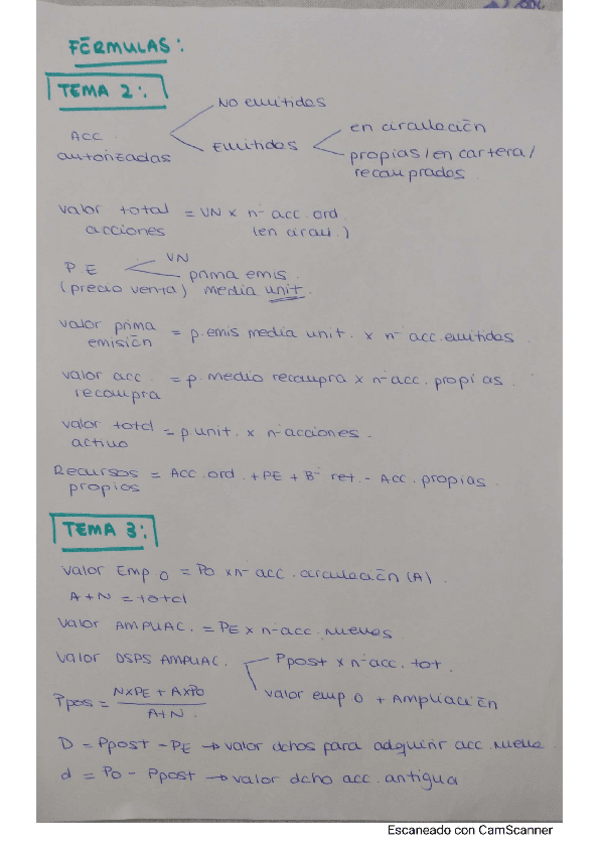 FÓRMULAS:
TEMA 2:
Acc. autorizadas
No emitidas
Emitidas
en circulación
propias/en cartera/
recompradas
Valor total = VN x nº acc. ord.
acciones (en circul.)
P.E VN
prima emis.
(precio venta) media unit.
Valor prima = p. emis media unit. x nº acc. emitidas
emisión
Valor acc. = p. medio recompra x nº acc. propias
recompra
Valor total = p unit. x nº acciones.
activo
Recursos = Acc. ord. + PE + Bº ret. - Acc. propias
propios
TEMA 3:
Valor Emp 0 = P0 x nº acc. circulación (A).
A + N = total
Valor AMPLIAC. = PE x nº acc. nuevas
Valor DSPS AMPLIAC. Ppost x nº acc. tot.
valor emp 0 + Ampliación
Ppos = NxPE + AxP0
A+N.
D = Ppost - PE → valor dchos para adquirir acc. nueva
d = P0 - Ppost → valor dcho acc. antigua
Escaneado con CamScanner